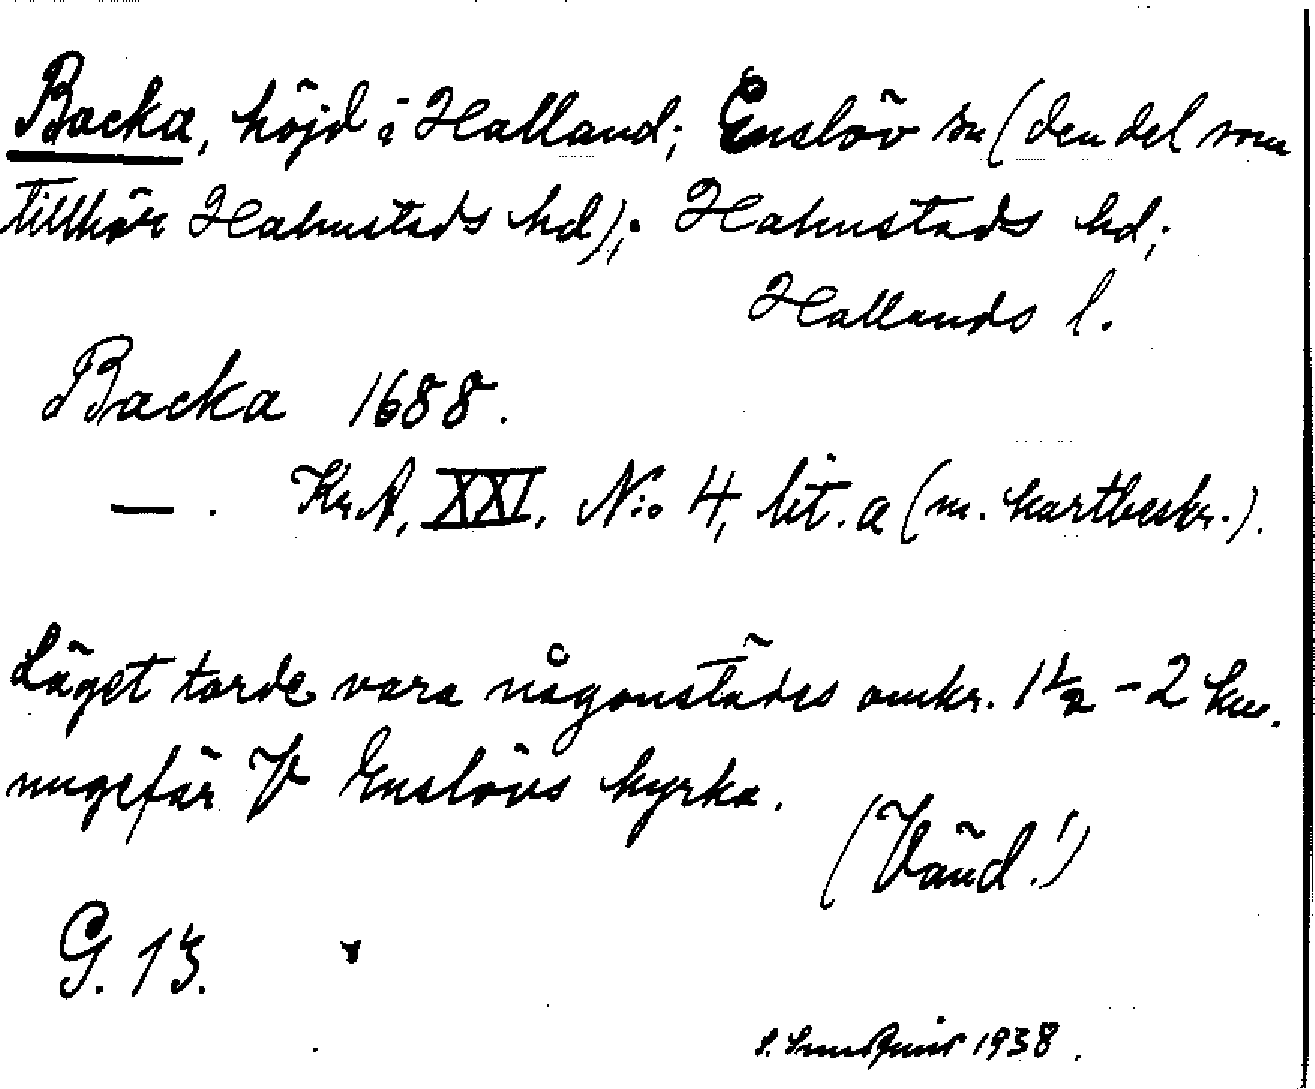 Backa, höjd i Halland; Enslöv sn (den del som
tillhör Halmstads hd); Halmstads hd;
Hallands l.
Backa 1688.
— . Kr.A, XXI, N:o 4, lit. a (m. kartbeskr.).
Läget torde vara någonstädes omkr. 1 1/2 - 2 km.
ungefär V Enslövs kyrka.
(Vänd!)
G. 13.
1938.